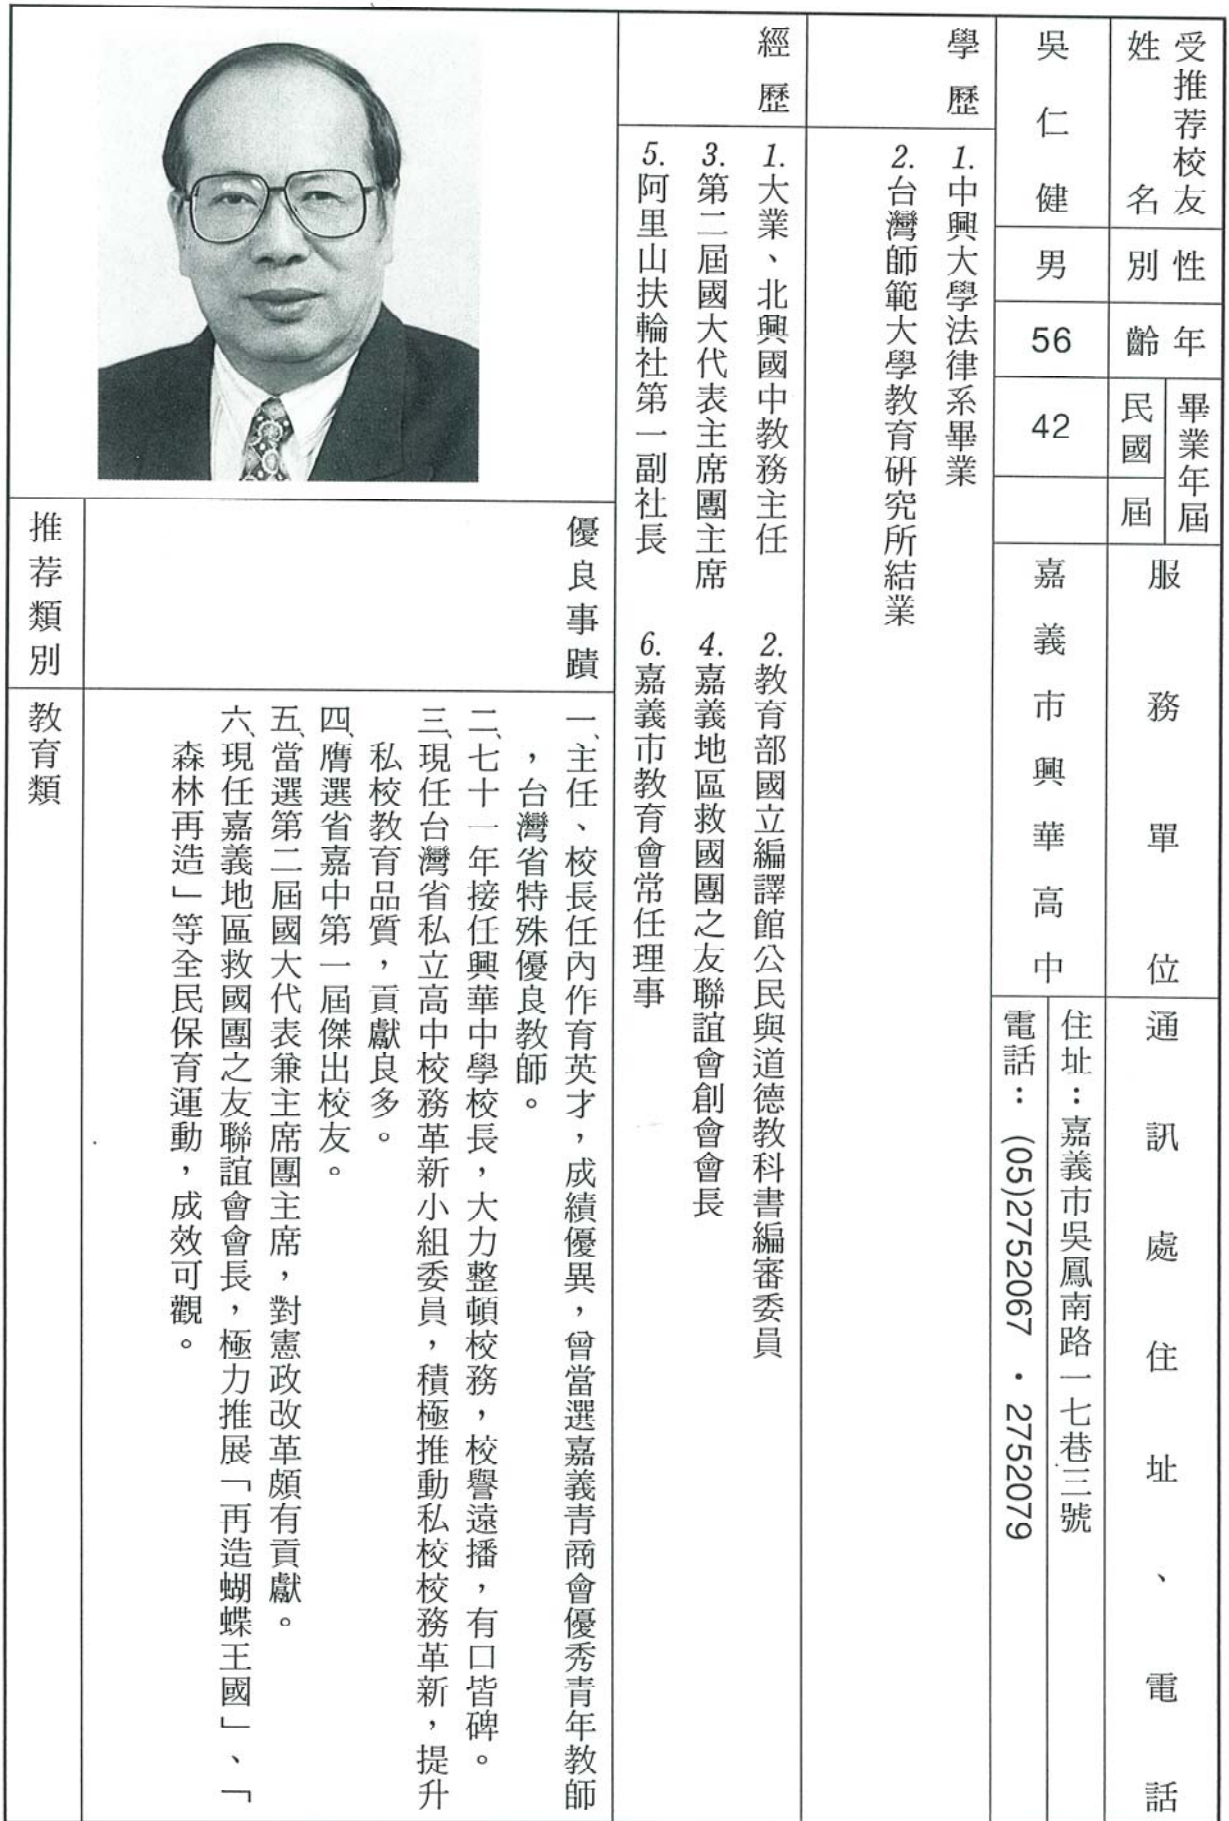 受推荐校友
姓名
性別
年齡
畢業年屆
民國
屆
服務單位
通訊處住址、電話
吳仁健
男
56
42
嘉義市興華高中
住址：嘉義市吳鳳南路一七巷三號
電話：(05)2752067・2752079
學歷
1.中興大學法律系畢業
2.台灣師範大學教育研究所結業
經歷
1.大業、北興國中教務主任
2.教育部國立編譯館公民與道德教科書編審委員
3.第二屆國大代表主席團主席
4.嘉義地區救國團之友聯誼會創會會長
5.阿里山扶輪社第一副社長
6.嘉義市教育會常任理事
優良事蹟
一、主任、校長任內作育英才，成績優異，曾當選嘉義青商會優秀青年教師
，台灣省特殊優良教師。
二、七十一年接任興華中學校長，大力整頓校務，校譽遠播，有口皆碑。
三、現任台灣省私立高中校務革新小組委員，積極推動私校校務革新，提升
私校教育品質，貢獻良多。
四、膺選省嘉中第一屆傑出校友。
五、當選第二屆國大代表兼主席團主席，對憲政改革頗有貢獻。
六、現任嘉義地區救國團之友聯誼會會長，極力推展「再造蝴蝶王國」、「
森林再造」等全民保育運動，成效可觀。
推荐類別
教育類